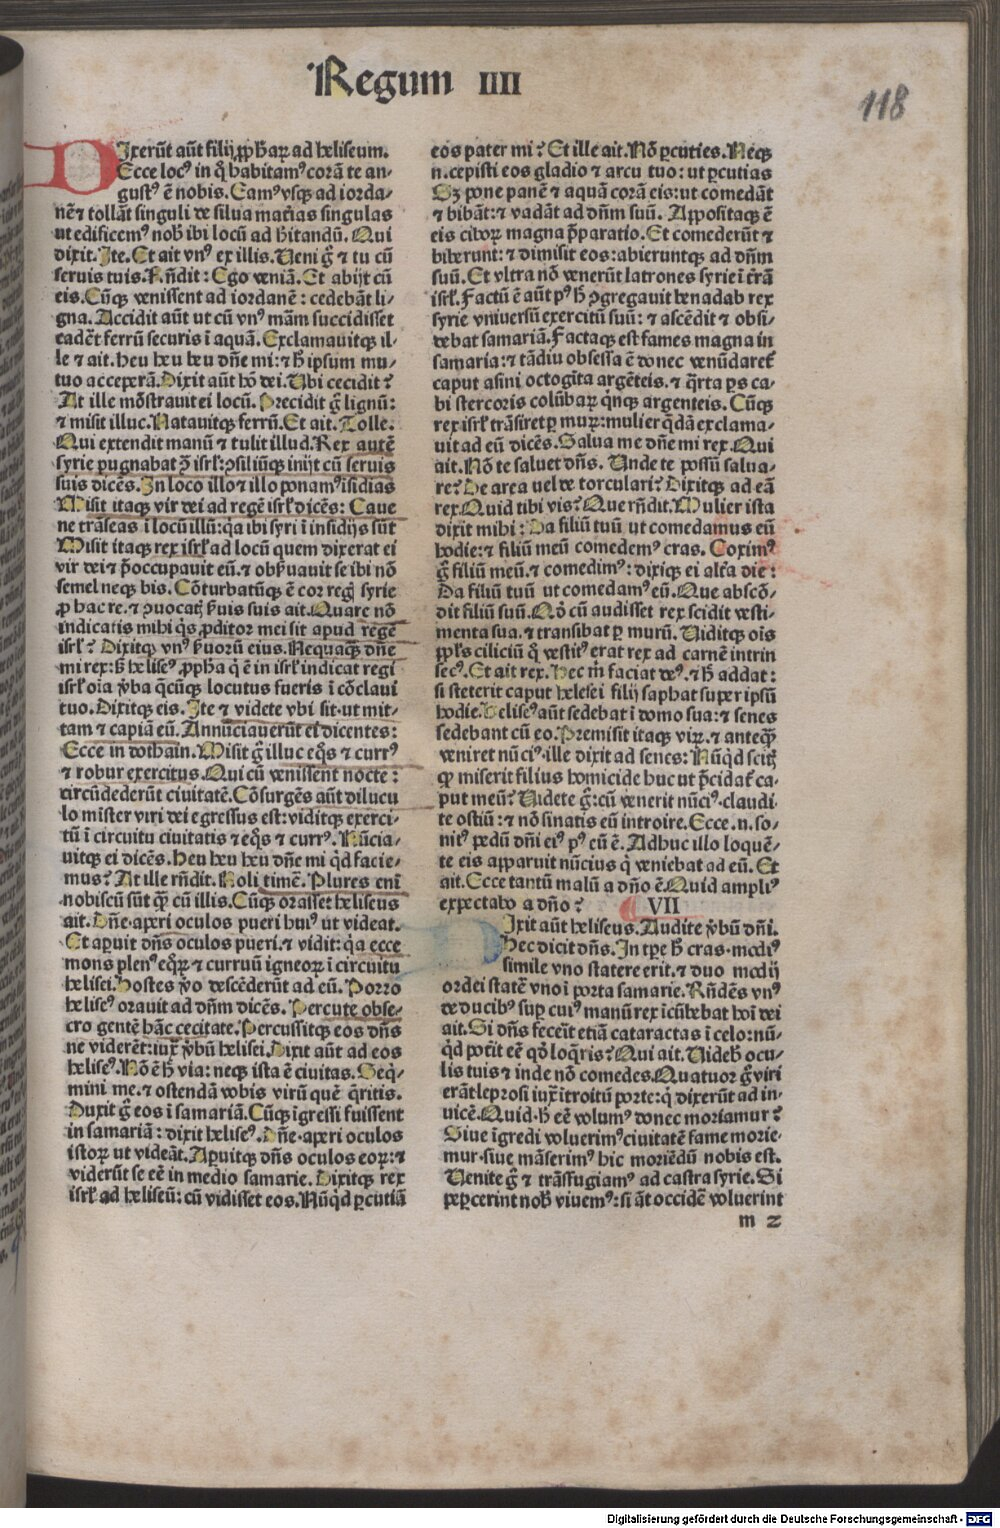 Regum IIII
118
DIxerūt aūt filij ꝓphaꝝ ad heliseum.
Ecce locꝰ in q̊ habitamꝰ corā te an-
gustꝰ ē nobis. Eamꝰ vsqꝫ ad iorda-
nē ⁊ tollāt singuli de silua mat̄ias singulas
ut edificemꝰ nob̄ ibi locū ad h̄itandū. Qui
dixit. Ite. Et ait vnꝰ ex illis. Ueni g̊ ⁊ tu cū
seruis tuis. Rn̄dit: Ego veniā. Et abijt cū
eis. Cūqꝫ venissent ad iordanē: cedebāt li-
gna. Accidit aūt ut cū vnꝰ mām succidisset
cadēt ferrū securis ī aquā. Exclamauitqꝫ il-
le ⁊ ait. Heu heu heu dn̄e mi: ⁊ h̄ ipsum mu-
tuo acceperā. Dixit aūt hō dei. Ubi cecidit?
At ille mōstrauit ei locū. Precidit g̊ lignū:
⁊ misit illuc. Natauitqꝫ ferrū. Et ait. Tolle.
Qui extendit manū ⁊ tulit illud. Rex autē
syrie pugnabat ꝯ̄ isrl̄: ꝯsiliūqꝫ inijt cū seruis
suis dicēs. In loco illo ⁊ illo ponamꝰ īsidias
Misit itaqꝫ vir dei ad regē isrl̄ dicēs: Caue
ne trāseas ī locū illū: qa ibi syri ī insidijs sūt
Misit itaqꝫ rex isrl̄ ad locū quem dixerat ei
vir dei ⁊ p̄occupauit eū. ⁊ obẜuauit se ibi nō
semel neqꝫ bis. Cōturbatūqꝫ ē cor reḡ syrie
ꝓ hac re. ⁊ ꝯuocat̄ ẜuis suis ait. Quare nō
indicatis mihi qs ꝓditor mei sit apud regē
isrl̄? Dixitqꝫ vnꝰ ẜuorū eius. Nequaqꝫ dn̄e
mi rex: sꝫ helisēꝰ ꝓpha q̇ ē in isrl̄ indicat regi
isrl̄ oīa ꝟba q̄cūqꝫ locutus fueris ī cōclaui
tuo. Dixitqꝫ eis. Ite ⁊ videte vbi sit. ut mit-
tam ⁊ capiā eū. Annūciauerūt ei dicentes:
Ecce in dothain. Misit g̊ illuc eq̊s ⁊ currꝰ
⁊ robur exercitus. Qui cū venissent nocte:
circūdederūt ciuitatē. Cōsurgēs aūt dilucu
lo mister viri dei egressus est: viditqꝫ exerci-
tū ī circuitu ciuitatis ⁊ eq̊s ⁊ currꝰ. Nūcia-
uitqꝫ ei dicēs. Heu heu heu dn̄e mi qd facie-
mus? At ille rn̄dit. Noli timē. Plures eni
nobiscū sūt qꝫ cū illis. Cūqꝫ orasset heliseus
ait. Dn̄e. aperi oculos pueri huiꝰ ut videat.
Et apuit dn̄s oculos pueri. ⁊ vidit: qa ecce
mons plenꝰ eqꝝ ⁊ curruū igneoꝝ ī circuitu
helisei. Hostes ꝟo descēderūt ad eū. Porro
helisēꝰ orauit ad dn̄m dicēs. Percute obse-
cro gentē hāc cecitate. Percussitqꝫ eos dn̄s
ne viderēt: iux̄ ꝟbū helisei. Dixit aūt ad eos
helisēꝰ. Nō ē h̄ via: neqꝫ ista ē ciuitas. Seq̄-
mini me. ⁊ ostendā vobis virū quē q̄ritis.
Duxit g̊ eos ī samariā. Cūqꝫ īgressi fuissent
in samariā: dixit helisēꝰ. Dn̄e. aperi oculos
istoꝝ ut videāt. Apuitqꝫ dn̄s oculos eoꝝ: ⁊
viderūt se eē in medio samarie. Dixitqꝫ rex
isrl̄ ad heliseū: cū vidisset eos. Nūqd ꝑcutiā
eos pater mi? Et ille ait. Nō ꝑcuties. Neqꝫ
n. cepisti eos gladio ⁊ arcu tuo: ut ꝑcutias
Sꝫ pone panē ⁊ aquā corā eis: ut comedāt
⁊ bibāt: ⁊ vadāt ad dn̄m suū. Appositaqꝫ ē
eis ciboꝝ magna p̄paratio. Et comederūt ⁊
biberunt: ⁊ dimisit eos: abieruntqꝫ ad dn̄m
suū. Et vltra nō venerūt latrones syrie ī t̄rā
isrl̄. Factū ē aūt pꝰ h̄ ꝯgregauit benadab rex
syrie vniuersū exercitū suū: ⁊ ascēdit ⁊ obsi-
debat samariā. Factaqꝫ est fames magna in
samaria: ⁊ tādiu obsessa ē donec venūdaret̄
caput asini octogīta argēteis. ⁊ q̄rta ꝑs ca-
bi stercoris colūbaꝝ qnqꝫ argenteis. Cūqꝫ
rex isrl̄ trāsiret ꝑ muꝝ: mulier q̄dā exclama-
uit ad eū dicēs. Salua me dn̄e mi rex. Qui
ait. Nō te saluet dn̄s. Unde te possū salua-
re? De area uel de torculari? Dixitqꝫ ad eā
rex. Quid tibi vis? Que rn̄dit. Mulier ista
dixit mihi: Da filiū tuū ut comedamus eū
hodie: ⁊ filiū meū comedemꝰ cras. Coximꝰ
g̊ filiū meū. ⁊ comedimꝰ: dixiqꝫ ei alt̄a die:
Da filiū tuū ut comedamꝰ eū. Que abscō-
dit filiū suū. Qḋ cū audisset rex scidit vesti-
menta sua. ⁊ transibat ꝑ murū. Uiditqꝫ oīs
ppl̄s ciliciū q̊ vestitꝰ erat rex ad carnē intrin
secꝰ. Et ait rex. Hec m̄ faciat deꝰ. ⁊ h̄ addat:
si steterit caput helesei filij saphat super ipsū
hodie. Helisēꝰ aūt sedebat ī domo sua: ⁊ senes
sedebant cū eo. Premisit itaqꝫ viꝝ. ⁊ anteqꝫ
veniret nūciꝰ. ille dixit ad senes: Nūqd scit̄
qꝫ miserit filius homicide huc ut p̄cidat̄ ca-
put meū? Uidete g̊: cū venerit nūciꝰ. claudi
te ostiū: ⁊ nō sinatis eū introire. Ecce. n. so-
nitꝰ pedū dn̄i eiꝰ pꝰ eū ē. Adhuc illo loquē-
te eis apparuit nūcius q̇ veniebat ad eū. Et
ait. Ecce tantū malū a dn̄o ē. Quid ampliꝰ
expectabo a dn̄o? VII
DIxit aūt heliseus. Audite ꝟbū dn̄i.
Hec dicit dn̄s. In tꝑe h̄ cras. modiꝰ
simile vno statere erit. ⁊ duo modij
ordei statē vno ī porta samarie. Rn̄dēs vnꝰ
de ducibꝰ suꝑ cuiꝰ manū rex īcūbebat hoī dei
ait. Si dn̄s feceīt etiā cataractas ī celo: nū-
qd pot̄it eē qḋ loq̄ris? Qui ait. Uideb̄ ocu-
lis tuis ⁊ inde nō comedes. Quatuor g̊ viri
erāt leprosi iux̄ ītroitū porte: q̇ dixerūt ad in-
uicē. Quid h̄ eē volumꝰ donec moriamur?
Siue īgredi voluerimꝰ ciuitatē fame morie-
mur. siue māserimꝰ hic moriēdū nobis est.
Uenite g̊ ⁊ trāsfugiamꝰ ad castra syrie. Si
peꝑcerint nob̄ viuemꝰ: si āt occidē voluerint
m 2
Digitalisierung gefördert durch die Deutsche Forschungsgemeinschaft - DFG